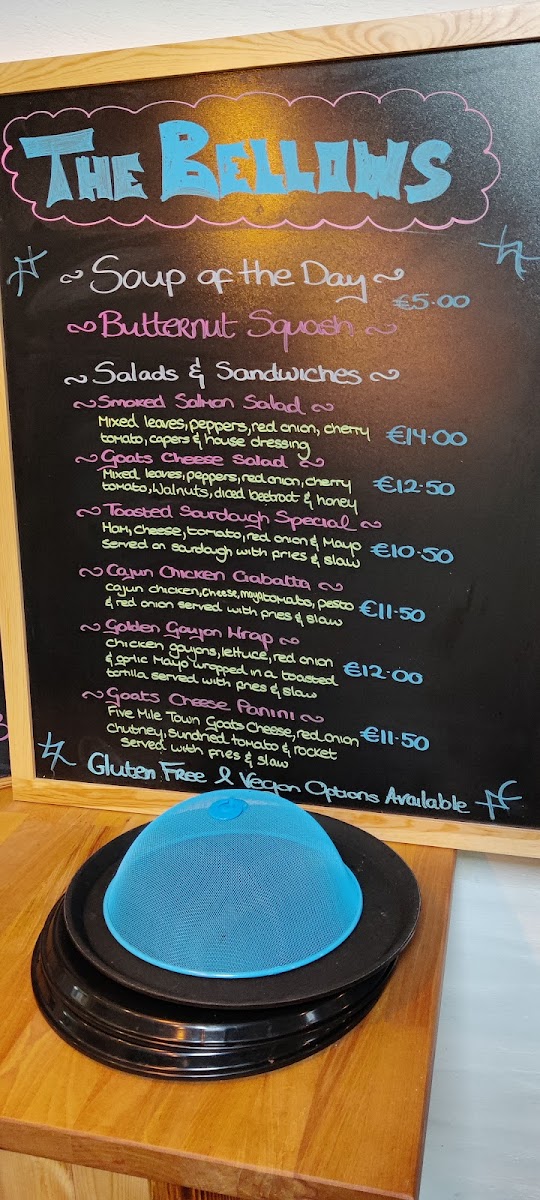 THE BELLOWS
~ Soup of the Day ~
€5.00
~ Butternut Squash ~
~ Salads & Sandwiches ~
~ Smoked Salmon Salad ~
Mixed leaves, peppers, red onion, cherry
tomato, capers & house dressing
€14.00
~ Goats Cheese Salad ~
Mixed leaves, peppers, red onion, cherry
tomato, Walnuts, diced beetroot & honey
€12.50
~ Toasted Sourdough Special ~
Ham, Cheese, tomato, red onion & Mayo
served on sourdough with fries & slaw
€10.50
~ Cajun Chicken Ciabatta ~
cajun chicken, cheese, mayo, tomato, pesto
& red onion served with fries & slaw
€11.50
~ Golden Goujon Wrap ~
Chicken goujons, lettuce, red onion
& garlic Mayo wrapped in a toasted
tortilla served with fries & slaw
€12.00
~ Goats Cheese Panini ~
Five Mile Town Goats Cheese, red onion
chutney, sundried tomato & rocket
served with fries & slaw
€11.50
Gluten Free & Vegan Options Available